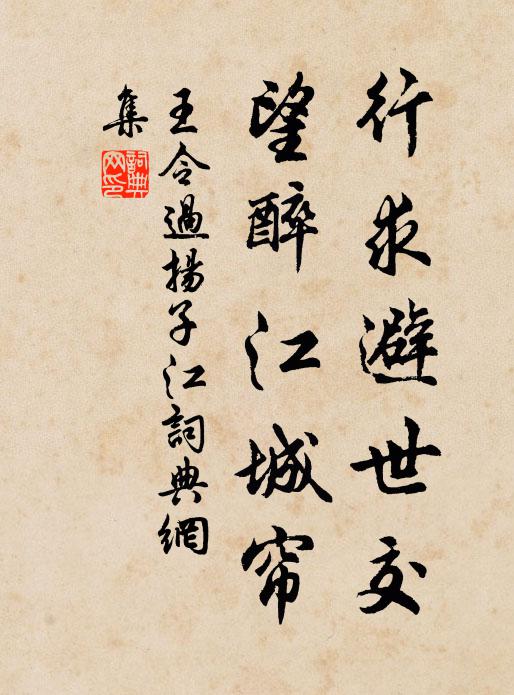 行求避世交
望醉江城帘
王令過揚子江詞典網
集
詞典
网印